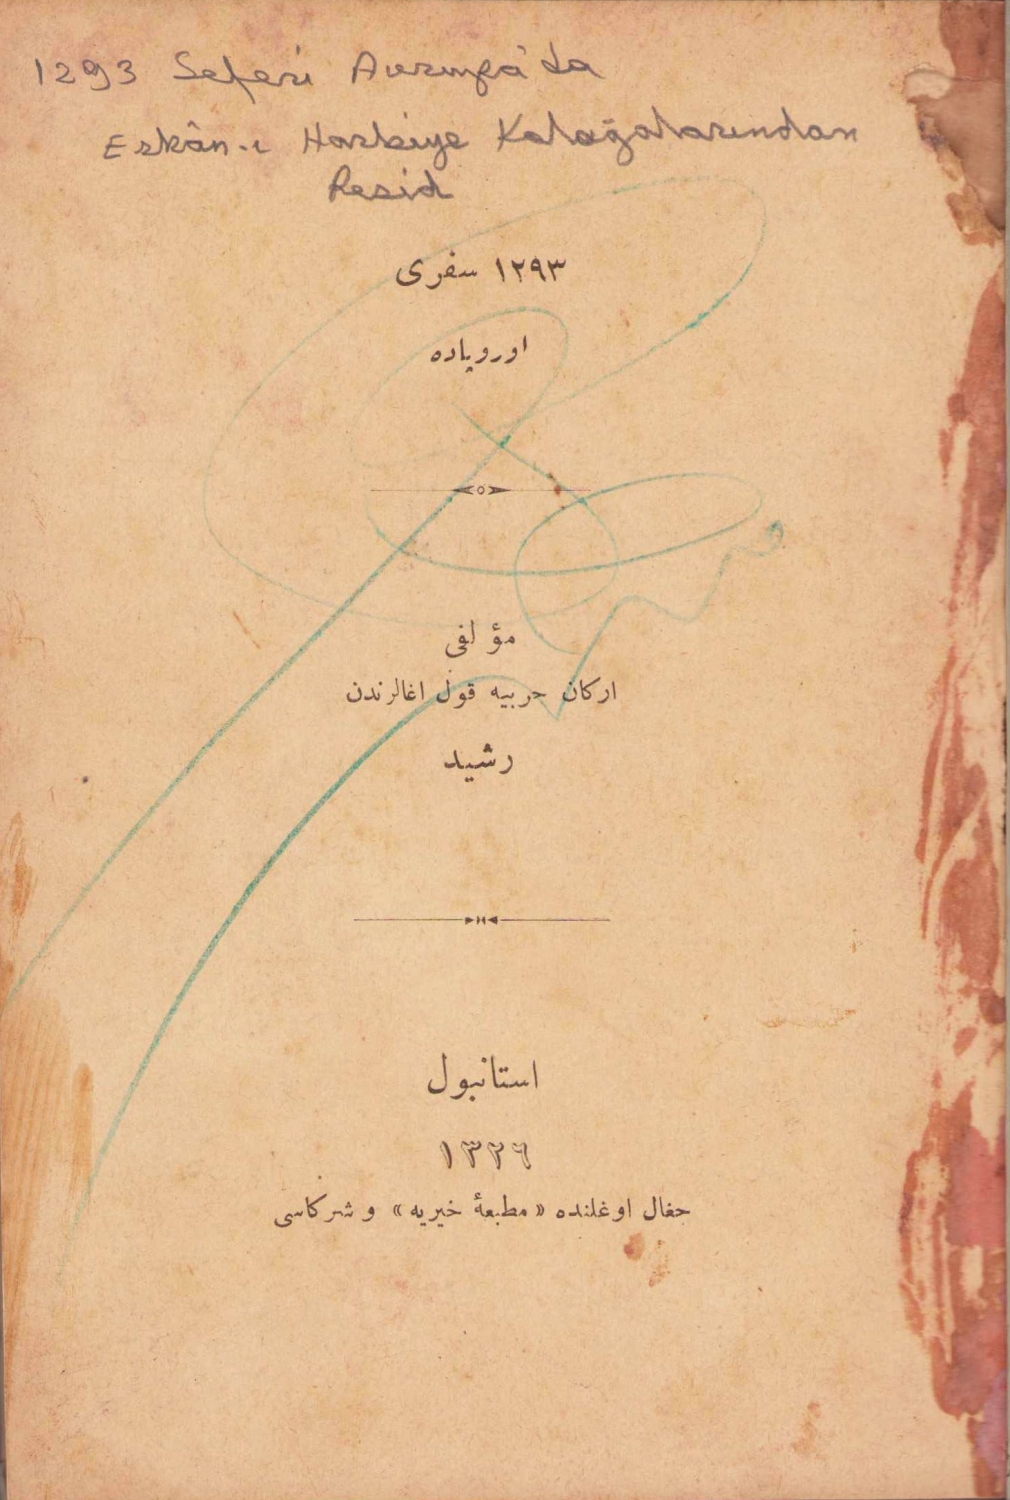 1293 Seferi Avrupa'da
Erkân-ı Harbiye Kolağalarından
Resid
١٢٩٣ سفری
اوروپاده
مؤلفی
اركان حربیه قول اغالرندن
رشید
استانبول
١٣٢٦
جغال اوغلنده «مطبعهٔ خیریه» و شركاسی